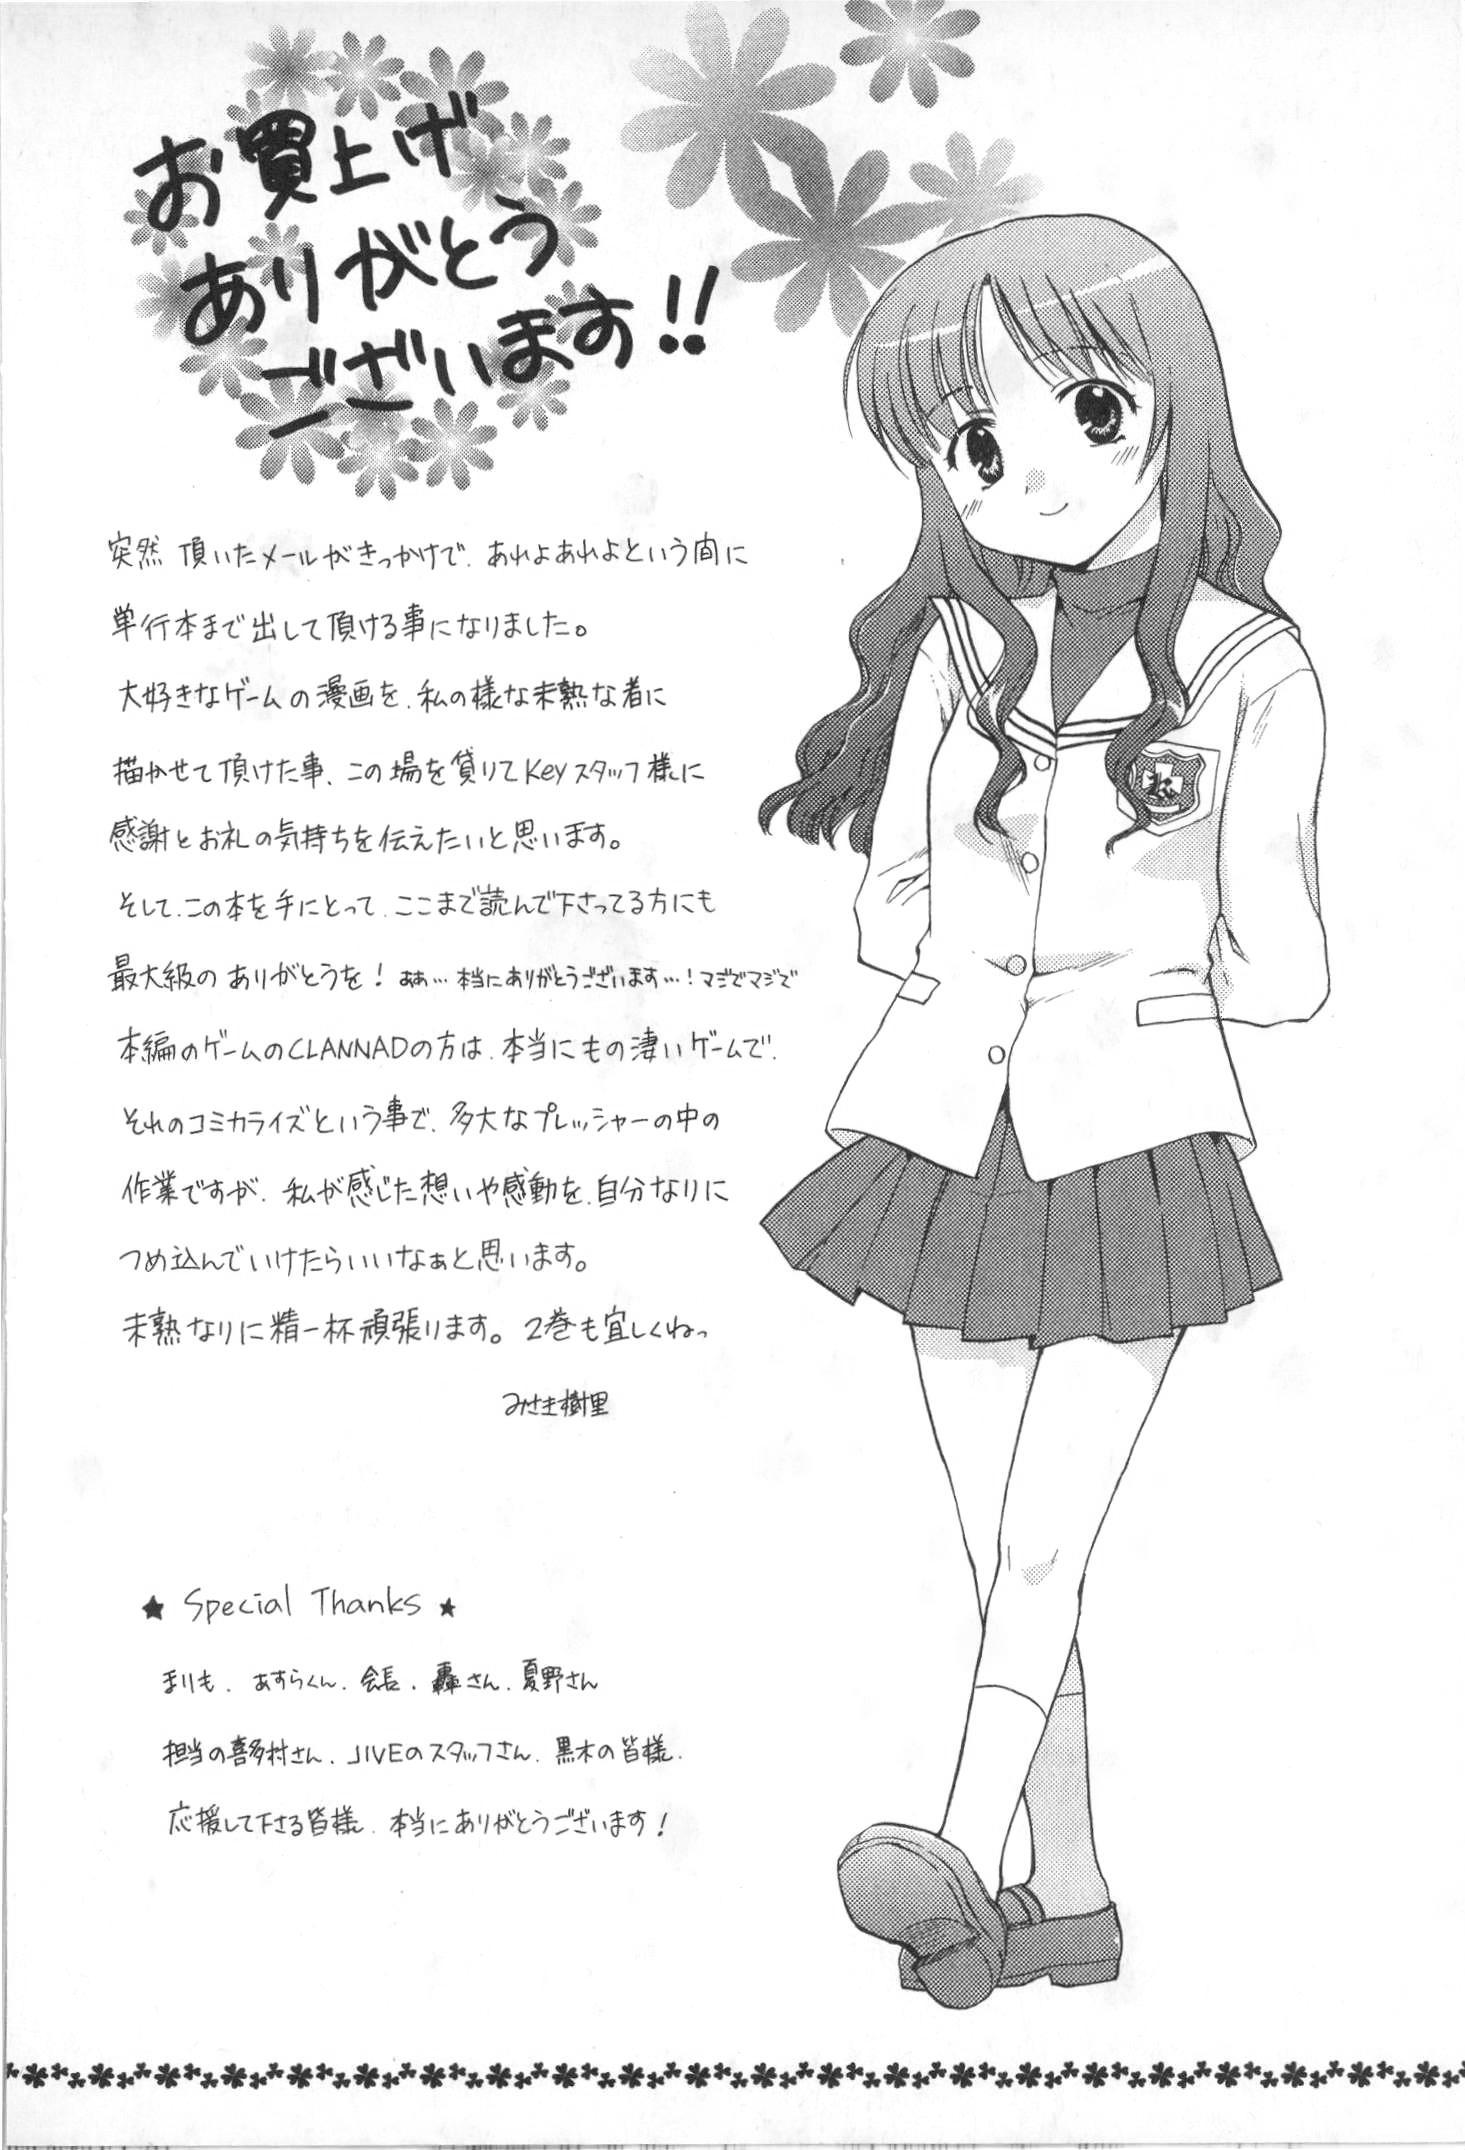 お買上げ
ありがとう
ございます!!
突然 頂いたメールがきっかけで、あれよあれよという間に
単行本まで出して頂ける事になりました。
大好きなゲームの漫画を、私の様な未熟な者に
描かせて頂けた事、この場を貸りてKeyスタッフ様に
感謝とお礼の気持ちを伝えたいと思います。
そして、この本を手にとって、ここまで読んで下さってる方にも
最大級のありがとうを! ああ…本当にありがとうございます…!マジでマジで
本編のゲームのCLANNADの方は、本当にもの凄いゲームで、
それのコミカライズという事で、多大なプレッシャーの中の
作業ですが、私が感じた想いや感動を、自分なりに
つめ込んでいけたらいいなぁと思います。
未熟なりに精一杯頑張ります。2巻も宜しくねっ
みさき樹里
★ Special Thanks ★
まりも、あすらくん、会長、轟さん、夏野さん
担当の喜多村さん、JIVEのスタッフさん、黒木の皆様、
応援して下さる皆様、本当にありがとうございます!